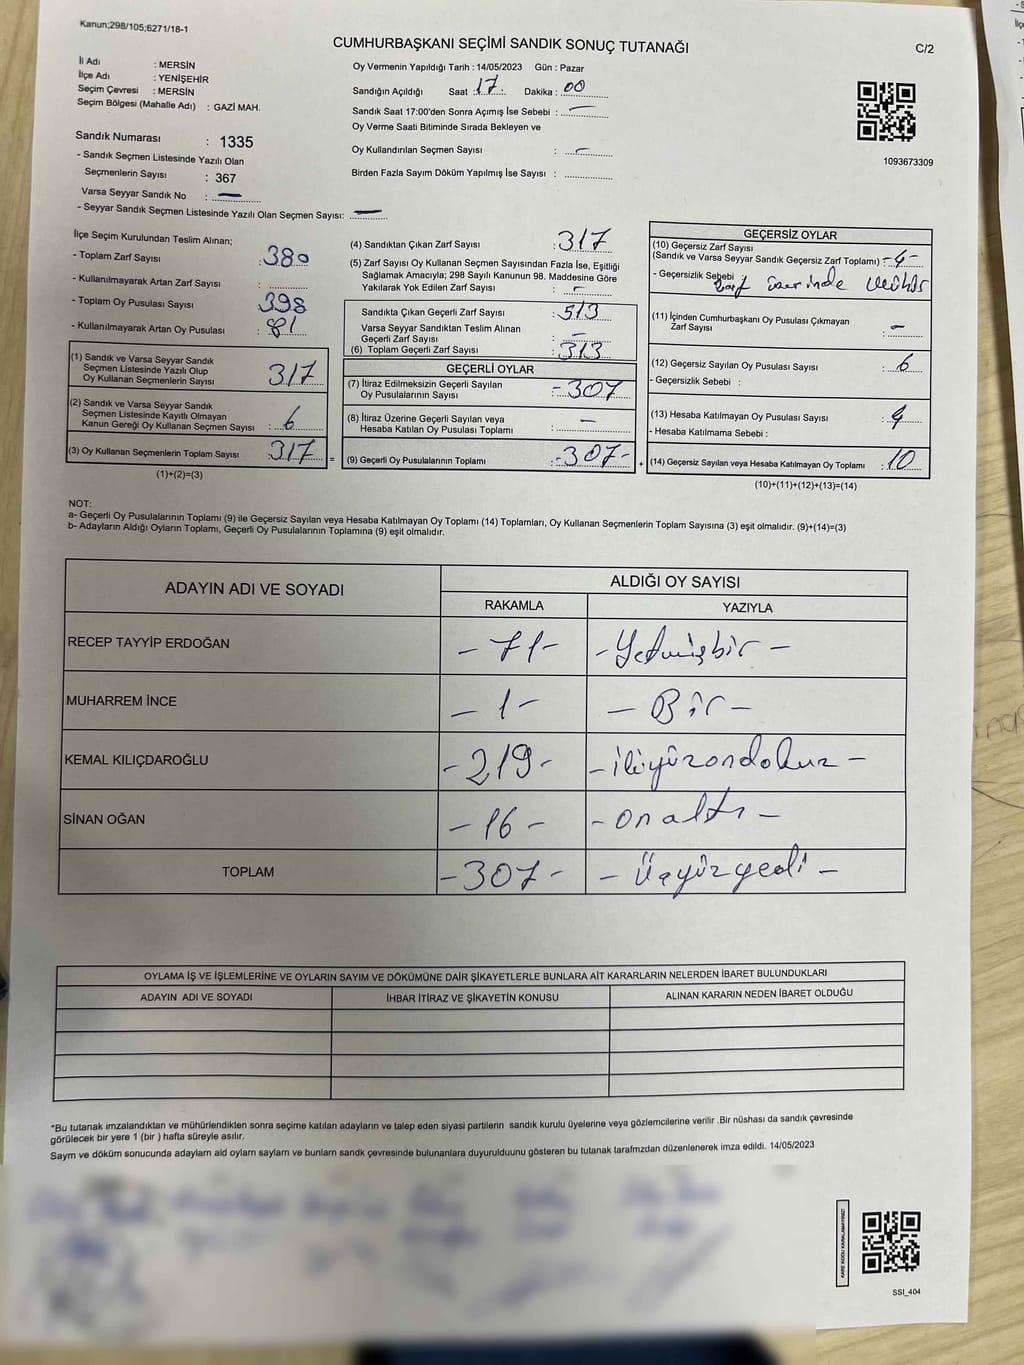 Kanun;298/105;6271/18-1
CUMHURBAŞKANI SEÇİMİ SANDIK SONUÇ TUTANAĞI
C/2
İl Adı : MERSİN
İlçe Adı : YENİŞEHİR
Seçim Çevresi : MERSİN
Seçim Bölgesi (Mahalle Adı) : GAZİ MAH.
Sandık Numarası : 1335
- Sandık Seçmen Listesinde Yazılı Olan
Seçmenlerin Sayısı : 367
Varsa Seyyar Sandık No : —
- Seyyar Sandık Seçmen Listesinde Yazılı Olan Seçmen Sayısı: —
Oy Vermenin Yapıldığı Tarih : 14/05/2023 Gün : Pazar
Sandığın Açıldığı Saat : 17 Dakika : 00
Sandık Saat 17:00'den Sonra Açımış İse Sebebi : —
Oy Verme Saati Bitiminde Sırada Bekleyen ve
Oy Kullandırılan Seçmen Sayısı : —
Birden Fazla Sayım Döküm Yapılmış İse Sayısı :
1093673309
İlçe Seçim Kurulundan Teslim Alınan;
- Toplam Zarf Sayısı : 380
- Kullanılmayarak Artan Zarf Sayısı :
- Toplam Oy Pusulası Sayısı : 398
- Kullanılmayarak Artan Oy Pusulası : 81
(1) Sandık ve Varsa Seyyar Sandık
Seçmen Listesinde Yazılı Olup
Oy Kullanan Seçmenlerin Sayısı : 317
(2) Sandık ve Varsa Seyyar Sandık
Seçmen Listesinde Kayıtlı Olmayan
Kanun Gereği Oy Kullanan Seçmen Sayısı : 6
(3) Oy Kullanan Seçmenlerin Toplam Sayısı : 317
(1)+(2)=(3)
=
(4) Sandıktan Çıkan Zarf Sayısı : 317
(5) Zarf Sayısı Oy Kullanan Seçmen Sayısından Fazla İse, Eşitliği
Sağlamak Amacıyla; 298 Sayılı Kanunun 98. Maddesine Göre
Yakılarak Yok Edilen Zarf Sayısı : —
Sandıkta Çıkan Geçerli Zarf Sayısı : 513
Varsa Seyyar Sandıktan Teslim Alınan
Geçerli Zarf Sayısı : —
(6) Toplam Geçerli Zarf Sayısı : 313
GEÇERLİ OYLAR
(7) İtiraz Edilmeksizin Geçerli Sayılan
Oy Pusulalarının Sayısı : -307
(8) İtiraz Üzerine Geçerli Sayılan veya
Hesaba Katılan Oy Pusulası Toplamı : —
(9) Geçerli Oy Pusulalarının Toplamı : -307-
+
GEÇERSİZ OYLAR
(10) Geçersiz Zarf Sayısı
(Sandık ve Varsa Seyyar Sandık Geçersiz Zarf Toplamı) : -4-
- Geçersizlik Sebebi : Zarf üzerinde mühür
(11) İçinden Cumhurbaşkanı Oy Pusulası Çıkmayan
Zarf Sayısı : —
(12) Geçersiz Sayılan Oy Pusulası Sayısı : 6
- Geçersizlik Sebebi :
(13) Hesaba Katılmayan Oy Pusulası Sayısı :
- Hesaba Katılmama Sebebi :
(14) Geçersiz Sayılan veya Hesaba Katılmayan Oy Toplamı : 10
(10)+(11)+(12)+(13)=(14)
NOT:
a- Geçerli Oy Pusulalarının Toplamı (9) ile Geçersiz Sayılan veya Hesaba Katılmayan Oy Toplamı (14) Toplamları, Oy Kullanan Seçmenlerin Toplam Sayısına (3) eşit olmalıdır. (9)+(14)=(3)
b- Adayların Aldığı Oyların Toplamı, Geçerli Oy Pusulalarının Toplamına (9) eşit olmalıdır.
ADAYIN ADI VE SOYADI
ALDIĞI OY SAYISI
RAKAMLA YAZIYLA
RECEP TAYYİP ERDOĞAN - 71 - - Yetmişbir -
MUHARREM İNCE - 1 - - Bir -
KEMAL KILIÇDAROĞLU - 219 - - ikiyüzondokuz -
SİNAN OĞAN - 16 - - on altı -
TOPLAM - 307 - - Üçyüzyedi -
OYLAMA İŞ VE İŞLEMLERİNE VE OYLARIN SAYIM VE DÖKÜMÜNE DAİR ŞİKAYETLERLE BUNLARA AİT KARARLARIN NELERDEN İBARET BULUNDUKLARI
ADAYIN ADI VE SOYADI İHBAR İTİRAZ VE ŞİKAYETİN KONUSU ALINAN KARARIN NEDEN İBARET OLDUĞU
*Bu tutanak imzalandıktan ve mühürlendikten sonra seçime katılan adayların ve talep eden siyasi partilerin sandık kurulu üyelerine veya gözlemcilerine verilir .Bir nüshası da sandık çevresinde
görülecek bir yere 1 (bir ) hafta süreyle asılır.
Saym ve döküm sonucunda adaylarn ald oylarn saylarn ve bunlarn sandk çevresinde bulunanlara duyurulduunu gösteren bu tutanak tarafmzdan düzenlenerek imza edildi. 14/05/2023
SSI_404